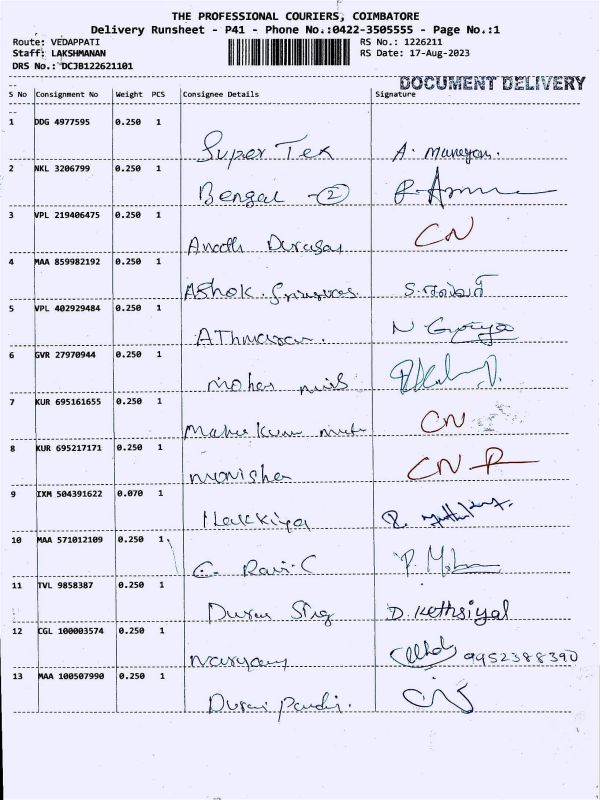 THE PROFESSIONAL COURIERS, COIMBATORE
Delivery Runsheet - P41 - Phone No.:0422-3505555 - Page No.:1
Route: VEDAPPATI RS No.: 1226211
Staff: LAKSHMANAN RS Date: 17-Aug-2023
DRS No.: DCJB122621101
DOCUMENT DELIVERY
S No Consignment No Weight PCS Consignee Details Signature
1 DDG 4977595 0.250 1
Super Tex A. Murugan.
2 NKL 3206799 0.250 1
Bengal - 2
3 VPL 219406475 0.250 1
CN
4 MAA 859982192 0.250 1
Ashok.
5 VPL 402929484 0.250 1
6 GVR 27970944 0.250 1
mohan
7 KUR 695161655 0.250 1
CN
8 KUR 695217171 0.250 1
monisha CN
9 IXM 504391622 0.070 1
Ilakkiya
10 MAA 571012109 0.250 1
G. Ravi.C P. Mohan
11 TVL 9858387 0.250 1
Durai D. Kethsiyal
12 CGL 100003574 0.250 1
9952388390
13 MAA 100507990 0.250 1
Durai pandi.